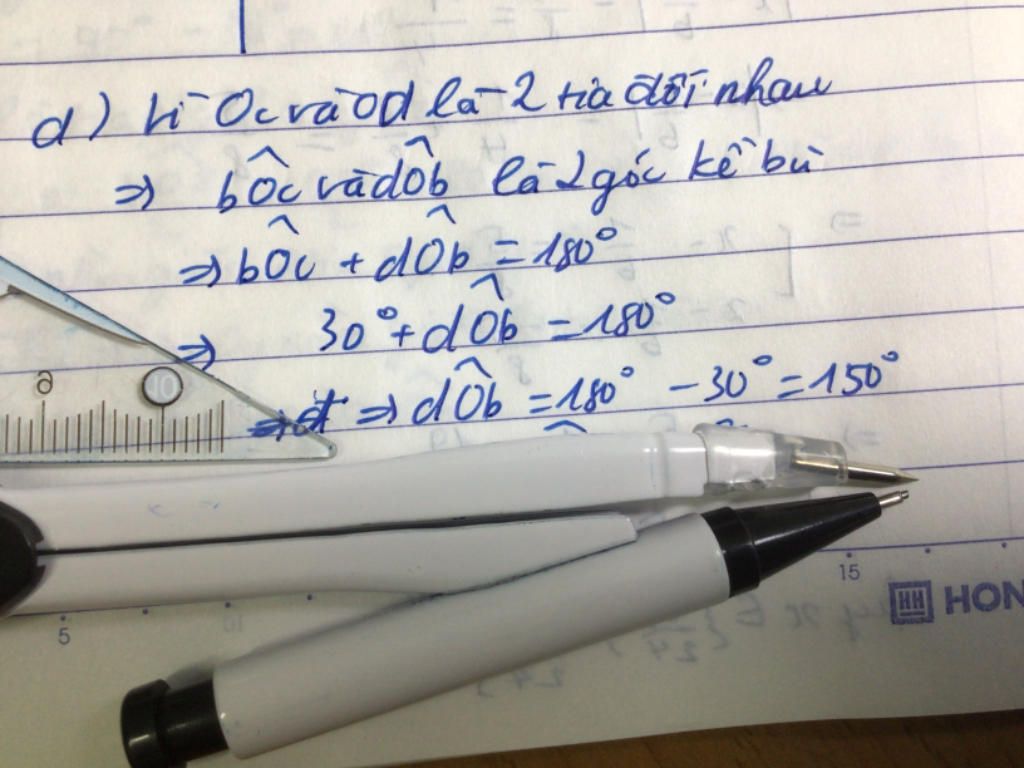 d) Vì Oc và Od là 2 tia đối nhau
=> bÔc và dÔb là 2 góc kề bù
=> bÔc + dÔb = 180°
=> 30° + dÔb = 180°
=> dÔb = 180° - 30° = 150°
6
10
5
10
15
HH HON